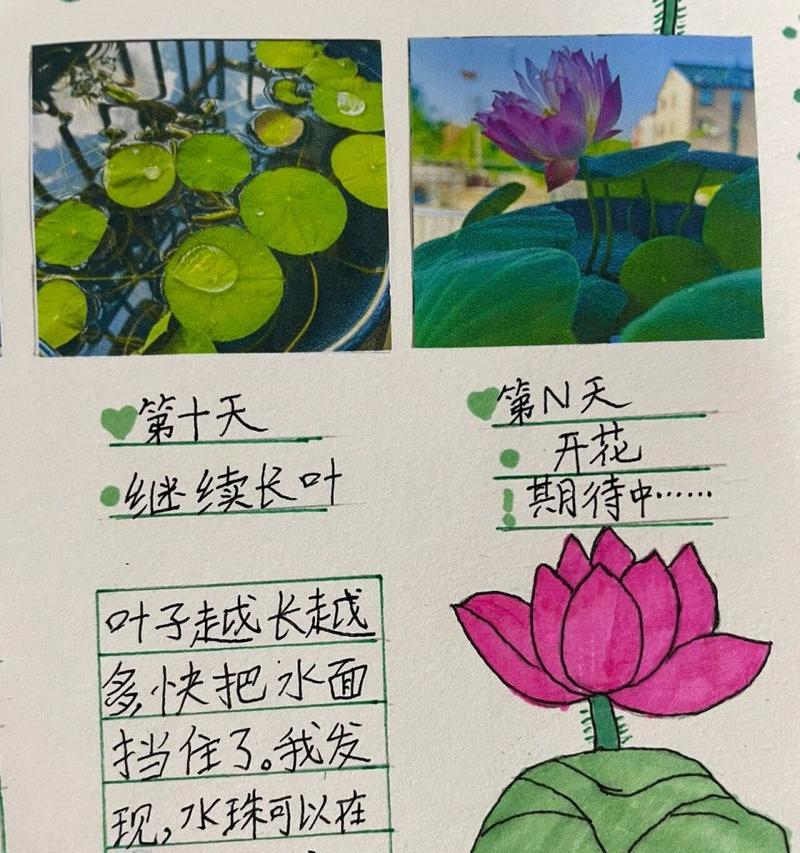 第十天
继续长叶
第N天
开花
期待中……
叶子越长越
多,快把水面
挡住了。我发
现,水珠可以在